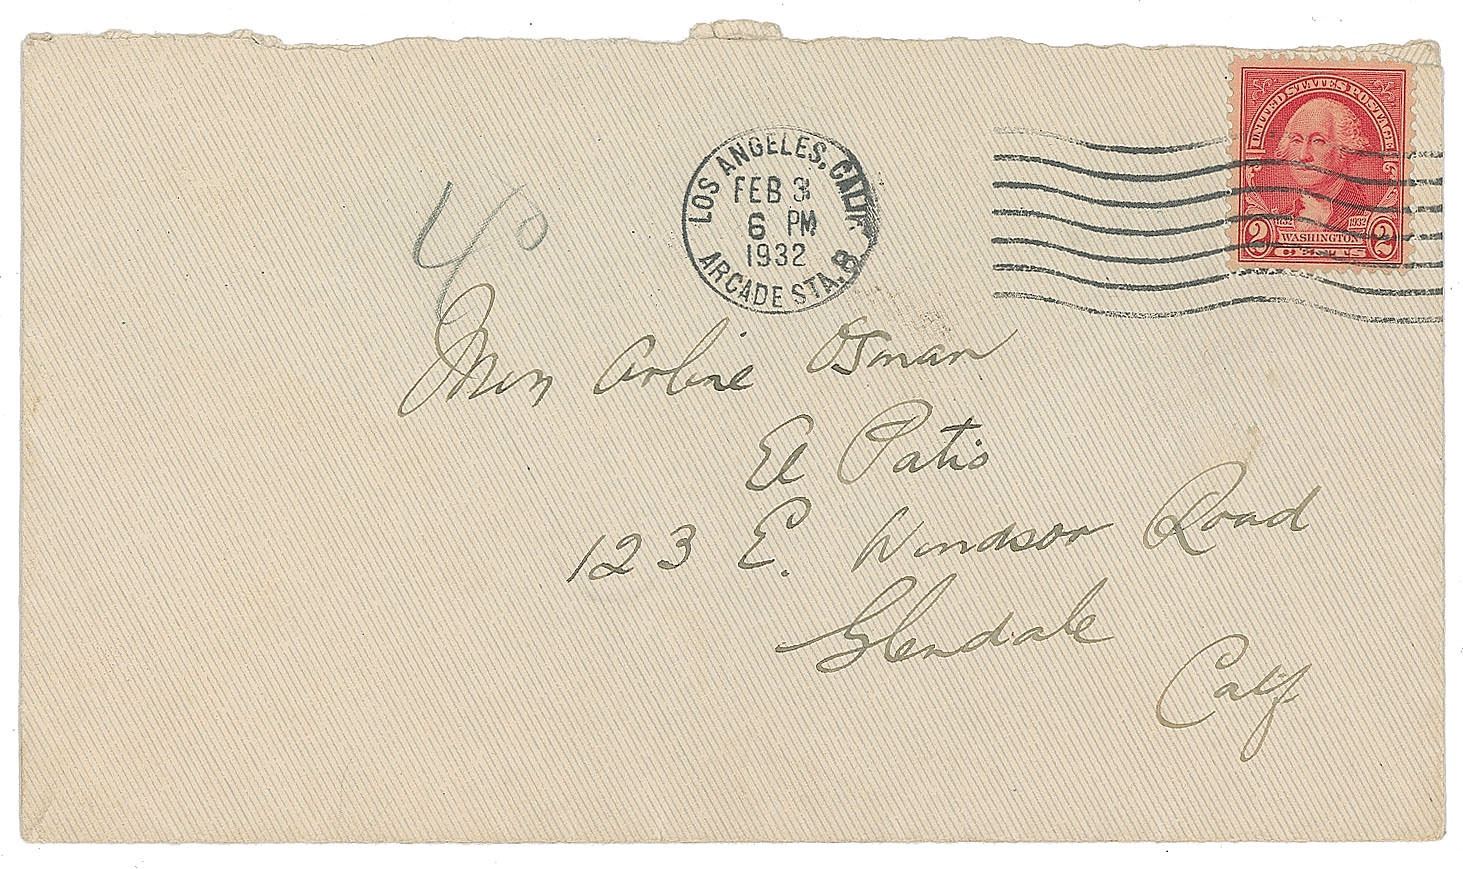 UNITED STATES POSTAGE
1732 1932
2 WASHINGTON 2
LOS ANGELES, CALIF.
FEB 3
6 PM
1932
ARCADE STA. 8
40
Miss Arline Osman
El Patio
123 E. Windsor Road
Glendale
Calif